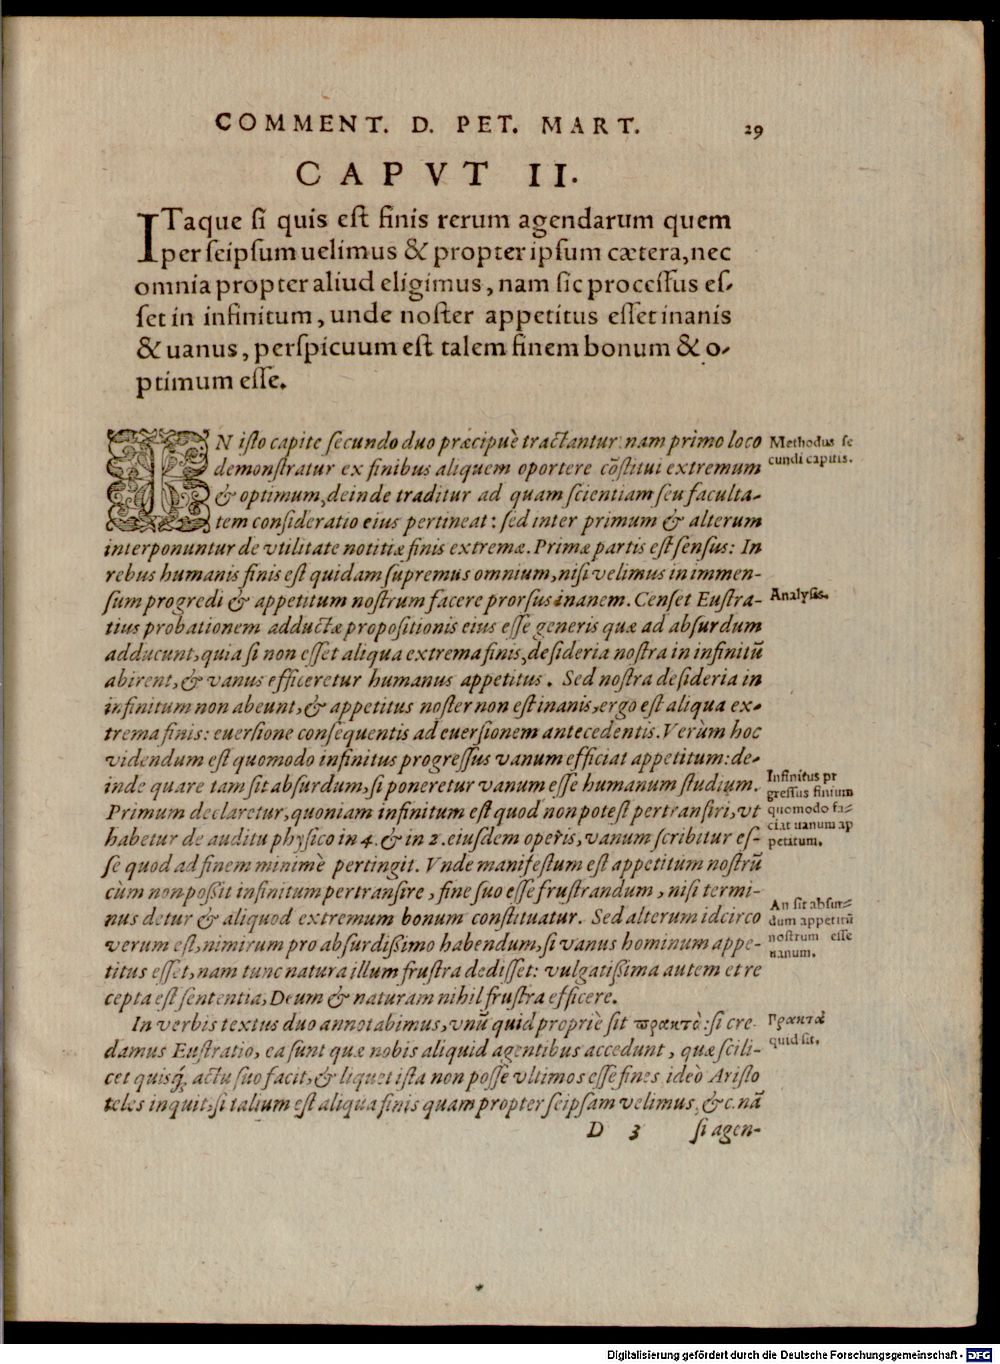 COMMENT. D. PET. MART. 29
CAPVT II.
ITaque si quis est finis rerum agendarum quem
per seipsum uelimus & propter ipsum cætera, nec
omnia propter aliud eligimus, nam sic processus es-
set in infinitum, unde noster appetitus esset inanis
& uanus, perspicuum est talem finem bonum & o-
ptimum esse.
IN isto capite secundo duo præcipuè tractantur: nam primo loco
demonstratur ex finibus aliquem oportere cõstitui extremum
& optimum, deinde traditur ad quam scientiam seu faculta-
tem consideratio eius pertineat: sed inter primum & alterum
interponuntur de vtilitate notitiæ finis extremæ. Primæ partis est sensus: In
rebus humanis finis est quidam supremus omnium, nisi velimus in immen-
sum progredi & appetitum nostrum facere prorsus inanem. Censet Eustra-
tius probationem adductæ propositionis eius esse generis quæ ad absurdum
adducunt, quia si non esset aliqua extrema finis, desideria nostra in infinitũ
abirent, & vanus efficeretur humanus appetitus. Sed nostra desideria in
infinitum non abeunt, & appetitus noster non est inanis, ergo est aliqua ex-
trema finis: euersione consequentis ad euersionem antecedentis. Verùm hoc
videndum est quomodo infinitus progressus vanum efficiat appetitum: de-
inde quare tam sit absurdum, si poneretur vanum esse humanum studium.
Primum declaretur, quoniam infinitum est quod non potest pertransiri, vt
habetur de auditu physico in 4. & in 2. eiusdem operis, vanum scribitur es-
se quod ad finem minimè pertingit. Vnde manifestum est appetitum nostrũ
cùm non possit infinitum pertransire, fine suo esse frustrandum, nisi termi-
nus detur & aliquod extremum bonum constituatur. Sed alterum idcirco
verum est, nimirum pro absurdissimo habendum, si vanus hominum appe-
titus esset, nam tunc natura illum frustra dedisset: vulgatissima autem et re
cepta est sententia, Deum & naturam nihil frustra efficere.
In verbis textus duo annotabimus, vnũ quid propriè sit πρακτὰ: si cre-
damus Eustratio, ea sunt quæ nobis aliquid agentibus accedunt, quæ scili-
cet quisq; actu suo facit, & liquet ista non posse vltimos esse fines ideò Aristo
teles inquit, si talium est aliqua finis quam propter seipsam velimus, &c. nã
D 3 si agen-
Methodus se
cundi capitis.
Analysis.
Infinitus pr
gressus finium
quomodo fa-
ciat uanum ap
petitum.
An sit absur-
dum appetitũ
nostrum esse
uanum.
Πρακτὰ
quid sit.
Digitalisierung gefördert durch die Deutsche Forschungsgemeinschaft - DFG